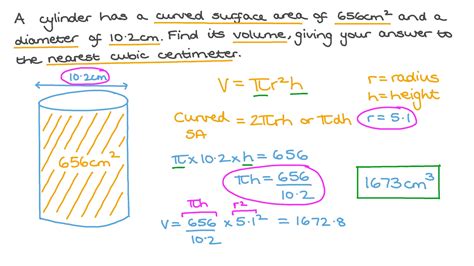 A cylinder has a curved surface area of 656cm² and a
diameter of 10.2cm. Find its volume, giving your answer to
the nearest cubic centimeter.
10.2cm
656cm²
V = πr²h
r = radius
h = height
Curved SA = 2πrh or πdh
r = 5.1
π × 10.2 × h = 656
πh = 656/10.2
1673cm³
πh r²
V = 656/10.2 × 5.1² = 1672.8